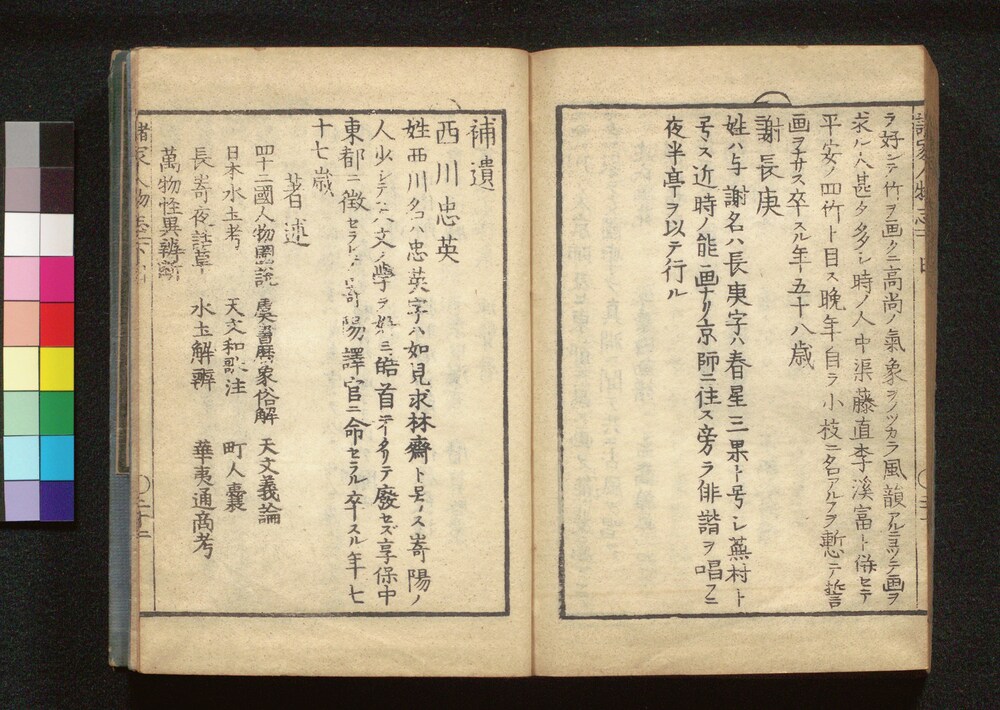 ラ好シテ竹ヲ画クニ高尚ノ氣象ヲノツカラ風韻アルニヨツテ画ヲ
求ル人甚タ多シ時ノ人中渠藤直李溪富ト併セテ
平安ノ四竹ト目ス晩年自ラ小技ニ名アルヲ慙テ誓
画ヲナサス卒スル年五十八歳
謝長庚
姓ハ与謝名ハ長庚字ハ春星三果ト号シ蕪村ト
号ス近時ノ能画ナリ京師ニ住ス旁ラ俳諧ヲ唱フニ
夜半亭ヲ以テ行ル
補遺
西川忠英
姓西川名ハ忠英字ハ如見求林齋ト号ス嵜陽ノ
人少シテ天文ノ學ヲ好ミ皓首ニイタリテ廢セズ享保中
東都ニ徴セラレテ嵜陽譯官ニ命セラル卒スル年七
十七歳
著述
四十二國人物圖説 虞書暦象俗解 天文義論
日本水土考 天文和歌注 町人嚢
長嵜夜話草 水土解辨 華夷通商考
萬物怪異辨断
諸家人物志